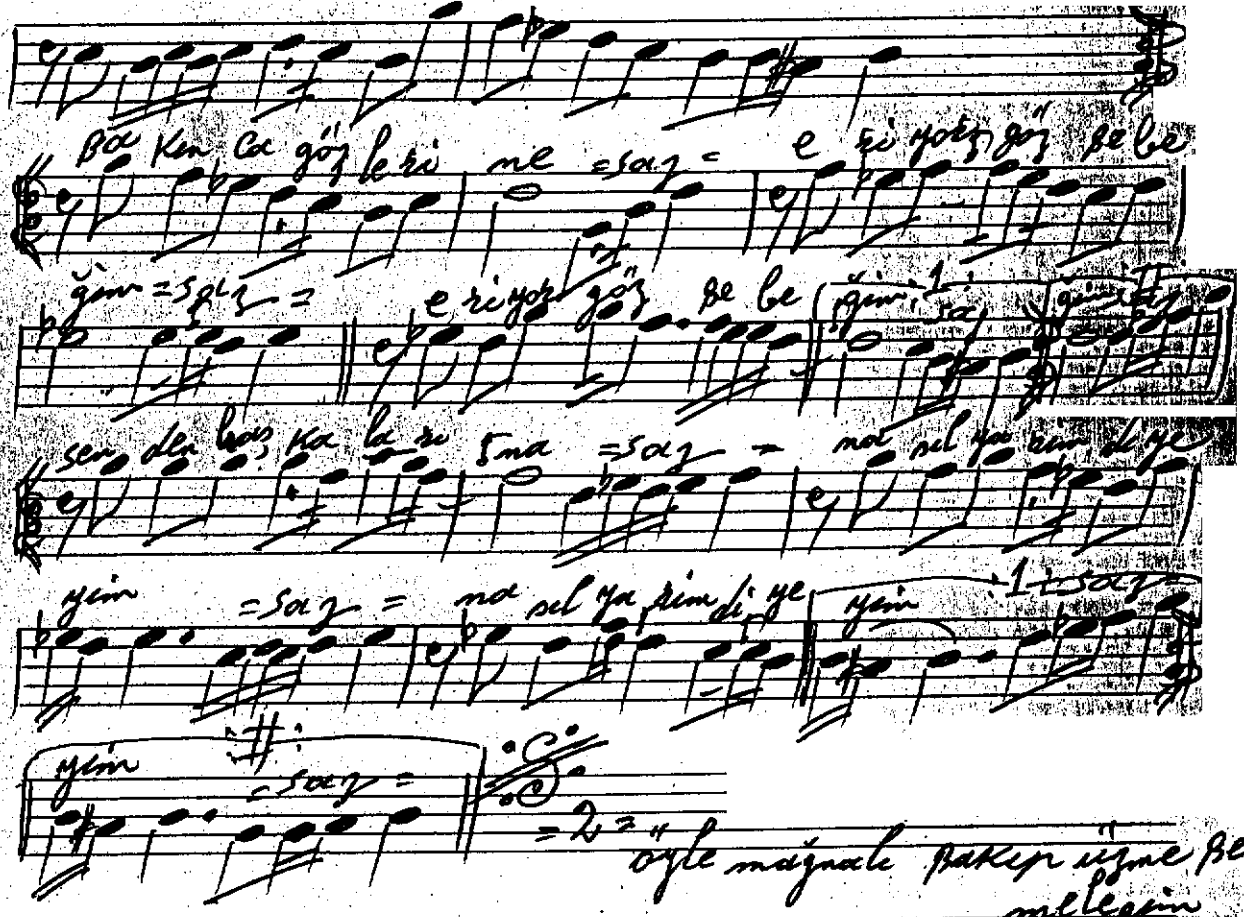 Bakınca gözlerine =saz= eriyor göz bebe
ğim =saz= eriyor göz bebe ğim :1: saz ğim :II:
senden başkalarına =saz= nasıl yarim diye
yim =saz= nasıl yarim diye yim :1: =saz=
yim :II: =saz=
=2=
öyle mağnalı Bakıp üzme Be
meleğim